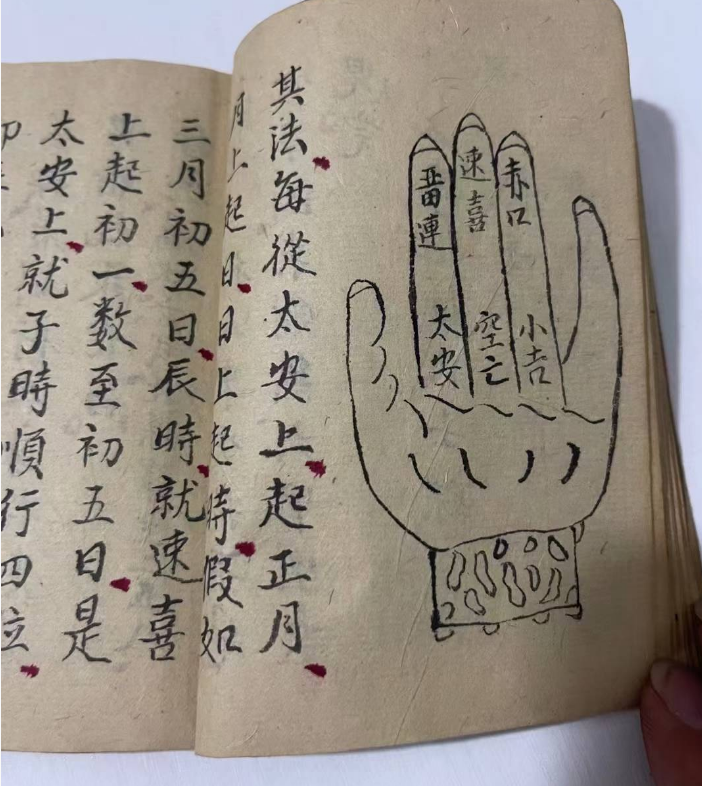 赤口
小吉
速喜
空亡
畱連
太安
其法每從太安上起正月
月上起日日上起時假如
三月初五日辰時就速喜
上起初一数至初五日是
太安上就子時順行四位